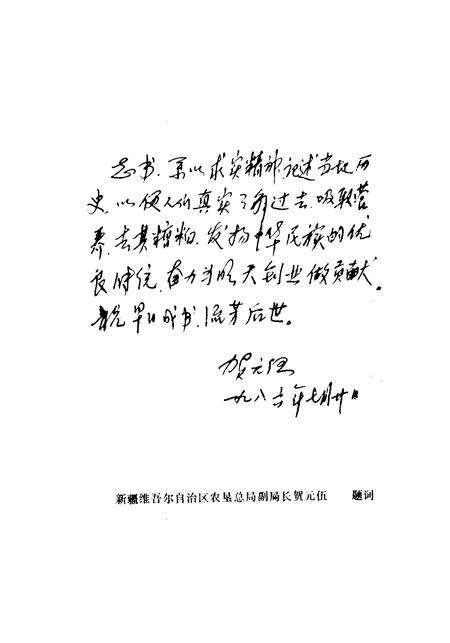 志书，系以求实精神，记述当地历
史，以便人们真实了解过去，吸取营
养，去其糟粕，发扬中华民族的优
良传统，奋力为明天创业做贡献。
早日成书，流芳后世。
贺元伍
一九八六年七月廿日
新疆维吾尔自治区农垦总局副局长贺元伍 题词